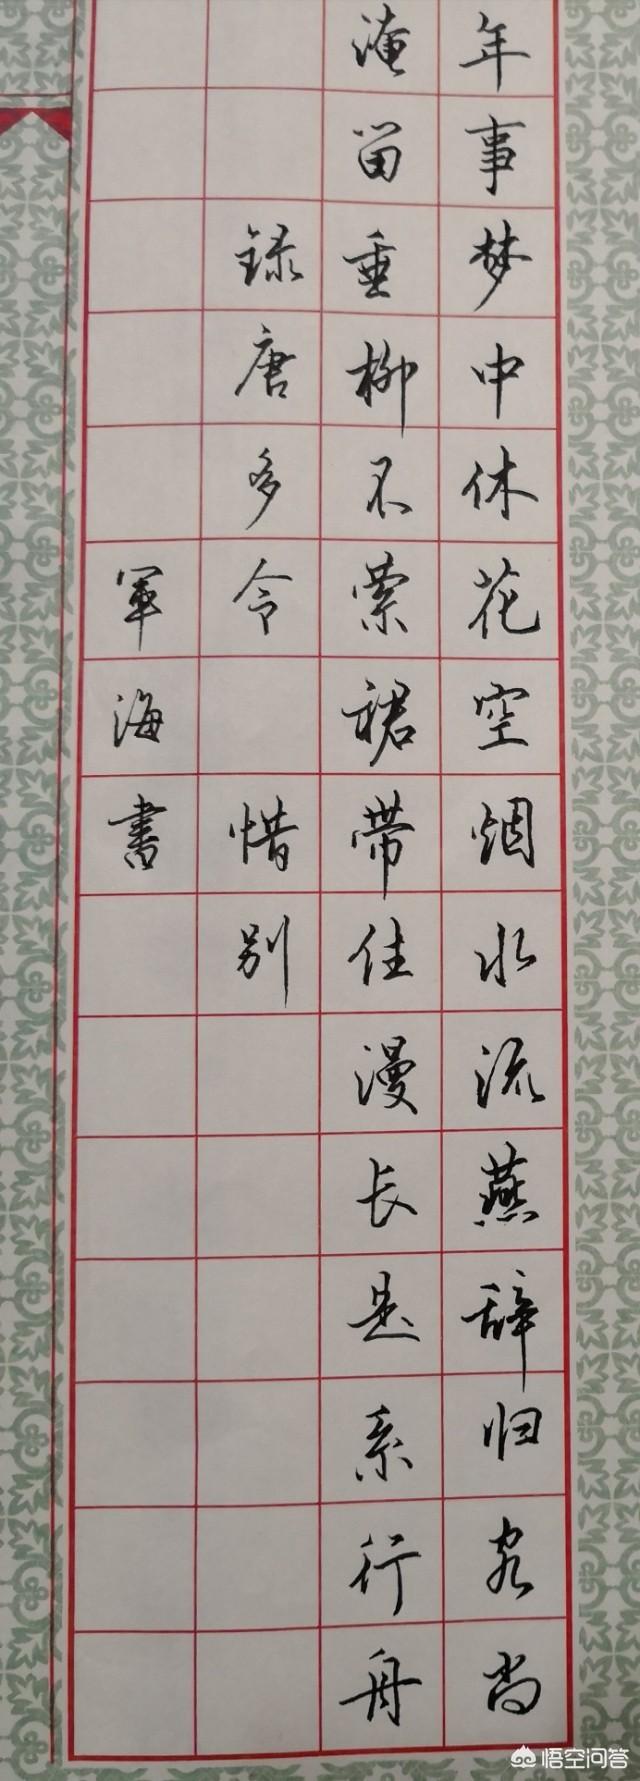 年事梦中休花空烟水流燕辞归客尚
淹留垂柳不萦裙带住漫长是系行舟
录唐多令 惜别
军海書
悟空问答